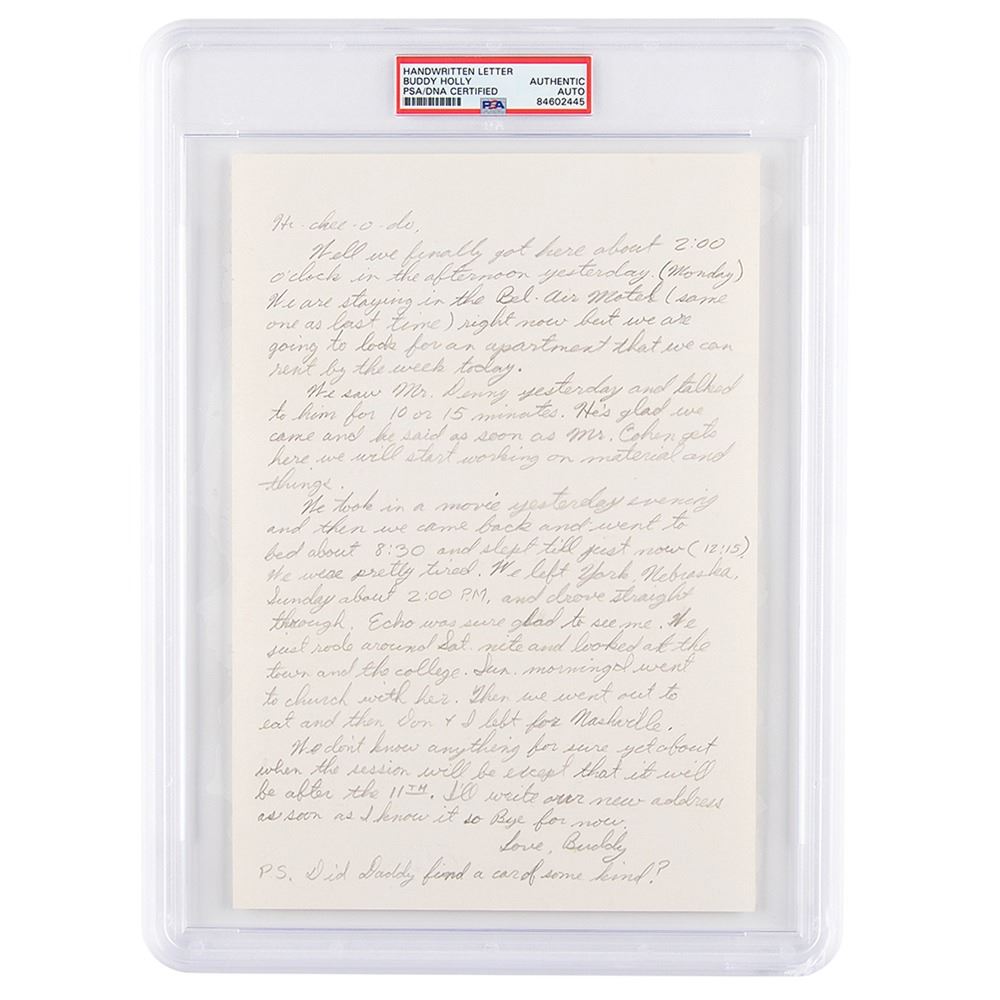 HANDWRITTEN LETTER
BUDDY HOLLY
PSA/DNA CERTIFIED
AUTHENTIC
AUTO
PSA
84602445
Hi-chee-o-do,
Well we finally got here about 2:00
o'clock in the afternoon yesterday. (Monday)
We are staying in the Bel-Air Motel (same
one as last time) right now but we are
going to look for an apartment that we can
rent by the week today.
We saw Mr. Denny yesterday and talked
to him for 10 or 15 minutes. He's glad we
came and he said as soon as Mr. Cohen gets
here we will start working on material and
things.
We took in a movie yesterday evening
and then we came back and went to
bed about 8:30 and slept till just now (12:15).
We were pretty tired. We left York, Nebraska,
Sunday about 2:00 P.M. and drove straight
through. Echo was sure glad to see me. We
just rode around Sat. nite and looked at the
town and the college. Sun. morning I went
to church with her. Then we went out to
eat and then Don & I left for Nashville.
We don't know anything for sure yet about
when the session will be except that it will
be after the 11TH. I'll write our new address
as soon as I know it so Bye for now.
Love, Buddy
P.S. Did Daddy find a car of some kind?